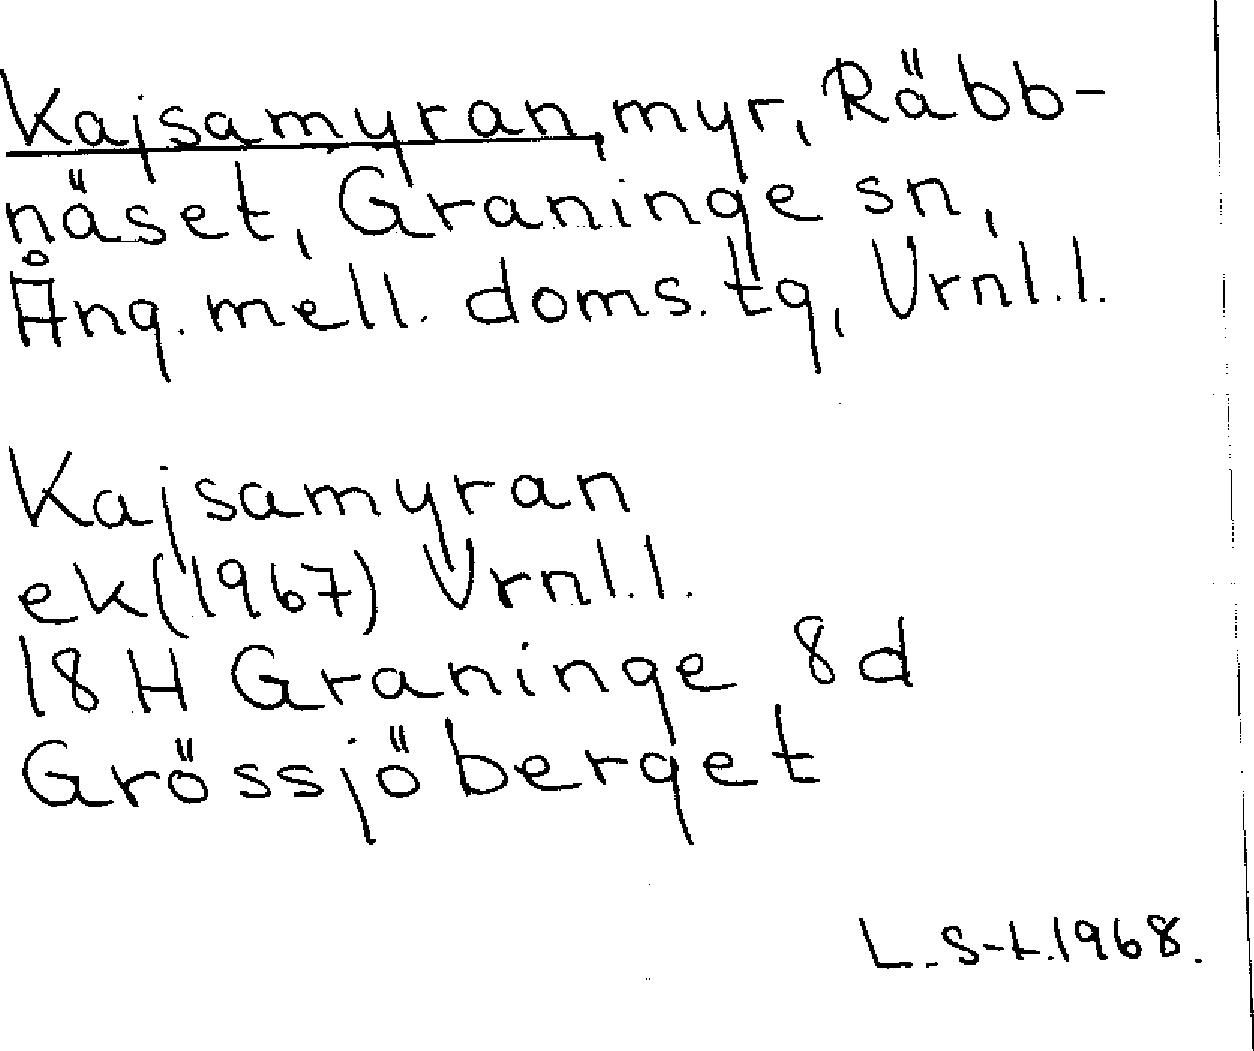 Kajsamyran, myr, Räbb-
näset, Graninge sn,
Ång. mell. doms. tg, Vrnl.l.
Kajsamyran
ek (1967) Vrnl.l.
18 H Graninge 8d
Grössjöberget
L. S-t. 1968.